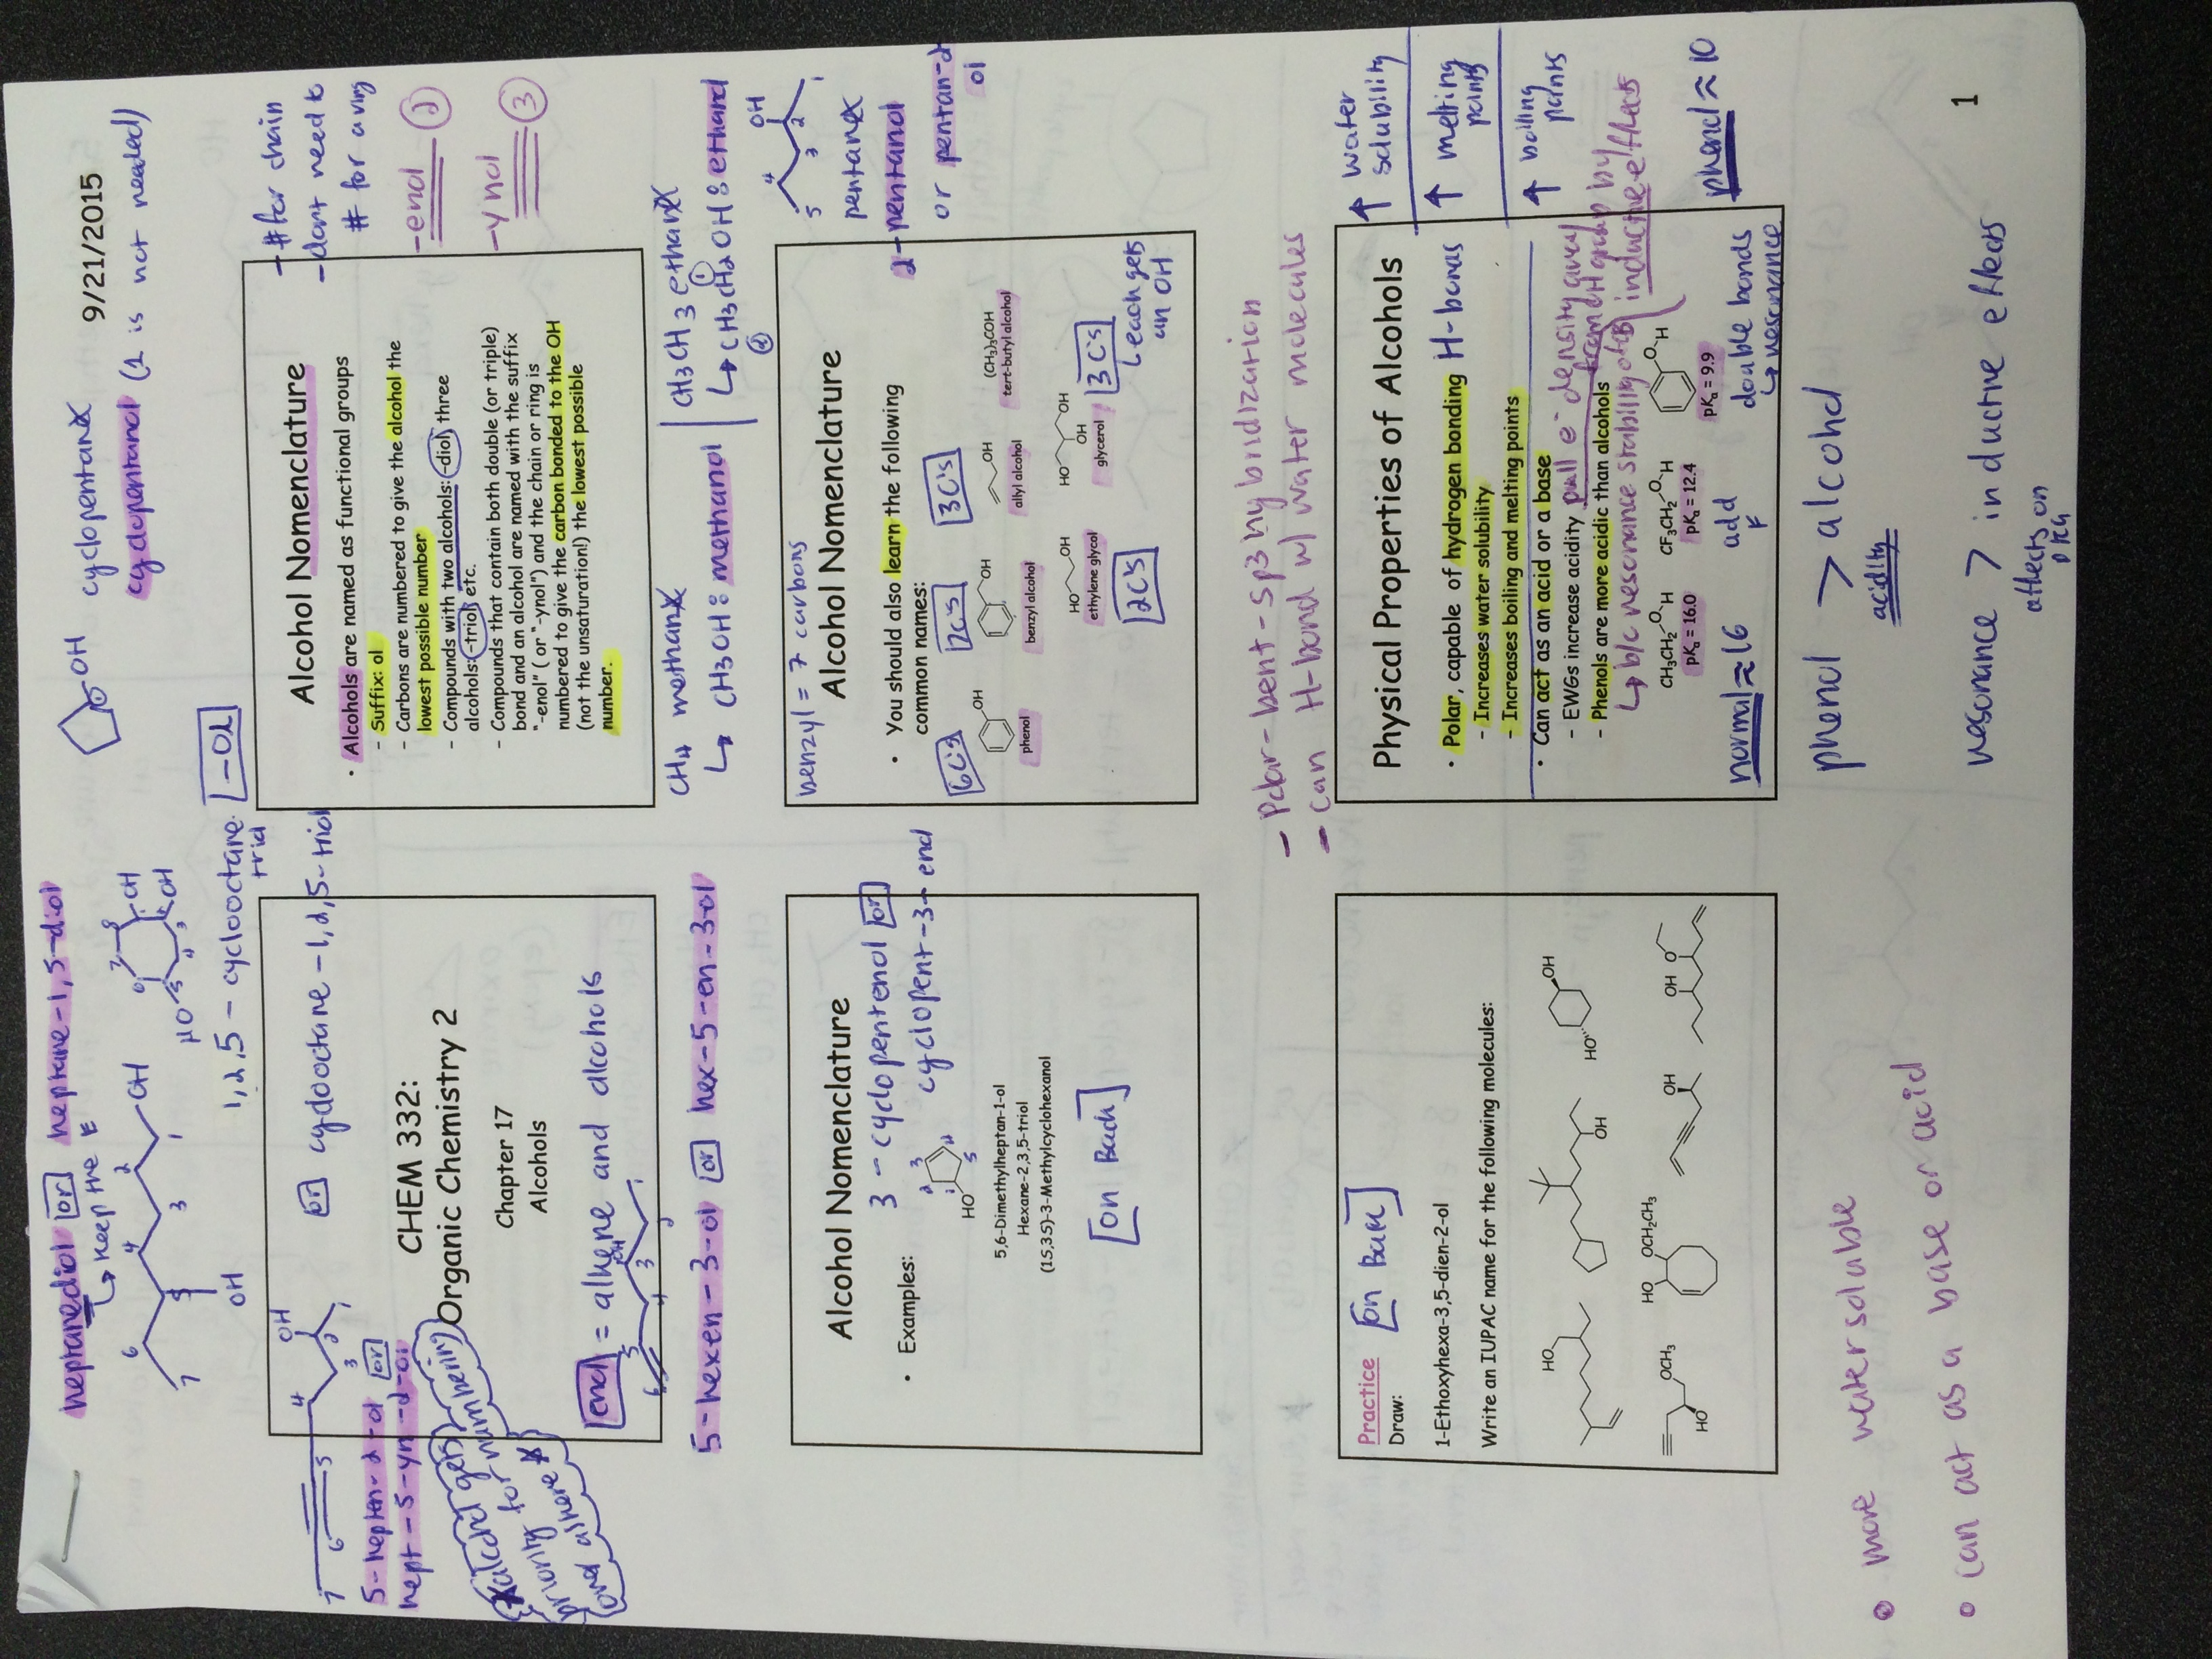 9/21/2015
heptanediol or heptane-1,5-diol
↳ keep the E
7 6 5 4 3 2 1 OH
OH
HO OH OH
1,2,5-cyclooctane triol
-OL
OH cyclopentane
cyclopentanol (1 is not needed)
or cyclooctane-1,2,5-triol
OH
7 6 5 4 3 2 1
or
hept-5-yn-2-ol
*alcohol gets
priority for numbering
ond alkene *
CHEM 332:
Organic Chemistry 2
Chapter 17
Alcohols
enol = alkene and alcohols
OH
6 5 4 3 2 1
5-hexen-3-ol or hex-5-en-3-ol
Alcohol Nomenclature
• Alcohols are named as functional groups
- Suffix: ol
- Carbons are numbered to give the alcohol the
lowest possible number
- Compounds with two alcohols: -diol, three
alcohols: -triol, etc.
- Compounds that contain both double (or triple)
bond and an alcohol are named with the suffix
"-enol" ( or "-ynol") and the chain or ring is
numbered to give the carbon bonded to the OH
(not the unsaturation!) the lowest possible
number.
- # for chain
- dont need to
# for a ring
-enol 2
-ynol 3
CH4 methane
↳ CH3OH: methanol
CH3CH3 ethane
↳ CH3CH2OH: ethanol
② ①
Alcohol Nomenclature
• Examples:
3-cyclopentenol or
cyclopent-3-enol
HO
1 2 3 4 5
5,6-Dimethylheptan-1-ol
Hexane-2,3,5-triol
(1S,3S)-3-Methylcyclohexanol
[on Back]
benzyl = 7 carbons
Alcohol Nomenclature
• You should also learn the following
common names:
6C's 7C's 3C's
OH OH OH (CH3)3COH
phenol benzyl alcohol allyl alcohol tert-butyl alcohol
HO OH HO OH OH
ethylene glycol glycerol
2C's 3C's
↳ each gets
an OH
OH
5 4 3 2 1
pentane
2-pentanol
or pentan-2-
ol
- Polar-bent-sp3 hybridization
- can H-bond w/ water molecules
Practice [on Back]
Draw:
1-Ethoxyhexa-3,5-dien-2-ol
Write an IUPAC name for the following molecules:
HO OH HO OH
HO OCH3 HO OCH2CH3 OH OH O
Physical Properties of Alcohols
• Polar, capable of hydrogen bonding H-bonds
- Increases water solubility
- Increases boiling and melting points
• Can act as an acid or a base
- EWGs increase acidity pull e- density away
from OH group by
inductive effects
- Phenols are more acidic than alcohols
↳ b/c resonance stability
CH3CH2 O H CF3CH2 O H O H
pKa = 16.0 pKa = 12.4 pKa = 9.9
normal ≈ 16 add F double bonds
↳ resonance
↑ water
solubility
↑ melting
points
↑ boiling
points
phenol ≈ 10
• more water soluble
• can act as a base or acid
phenol > alcohol
acidity
resonance > inductive effects
affects on
pKa
1